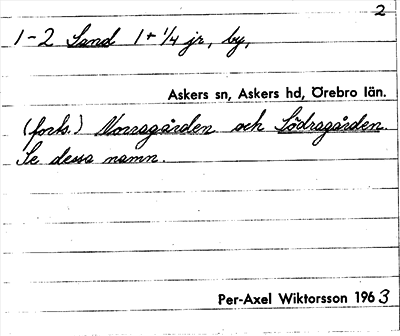 2
1-2 Sand 1+1/4 jr, by,
Askers sn, Askers hd, Örebro län.
(forts.) Norragården och Södragården.
Se dessa namn.
Per-Axel Wiktorsson 1963